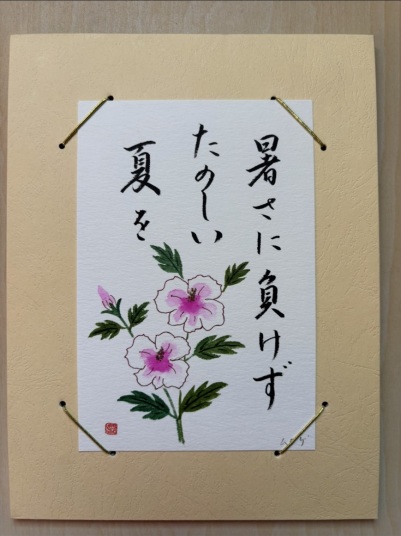 暑さに負けず
たのしい
夏を
むくげ